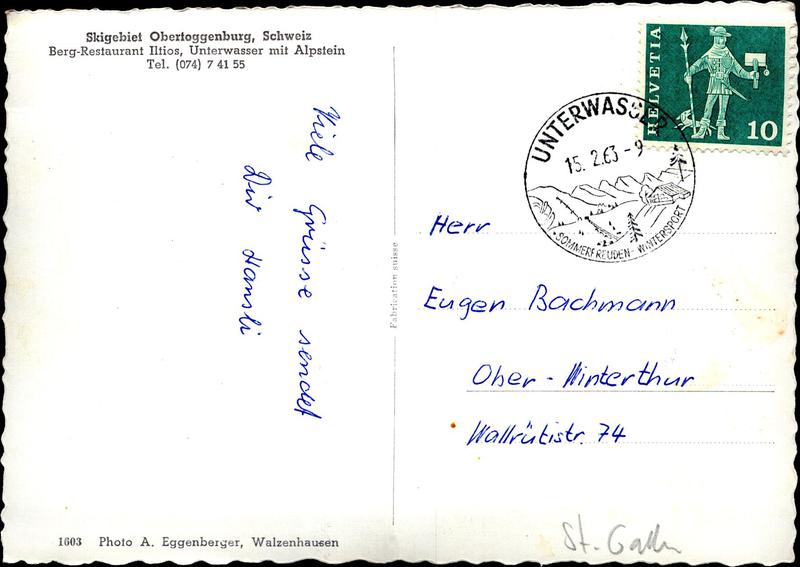 Skigebiet Obertoggenburg, Schweiz
Berg-Restaurant Iltios, Unterwasser mit Alpstein
Tel. (074) 7 41 55
Viele Grüsse sendet
Dir Hansli
Fabrication suisse
HELVETIA
10
UNTERWASSER
15. 2. 63 - 9
SOMMERFREUDEN - WINTERSPORT
Herr
Eugen Bachmann
Ober - Winterthur
Wallrütistr. 74
1603 Photo A. Eggenberger, Walzenhausen
St. Gallen